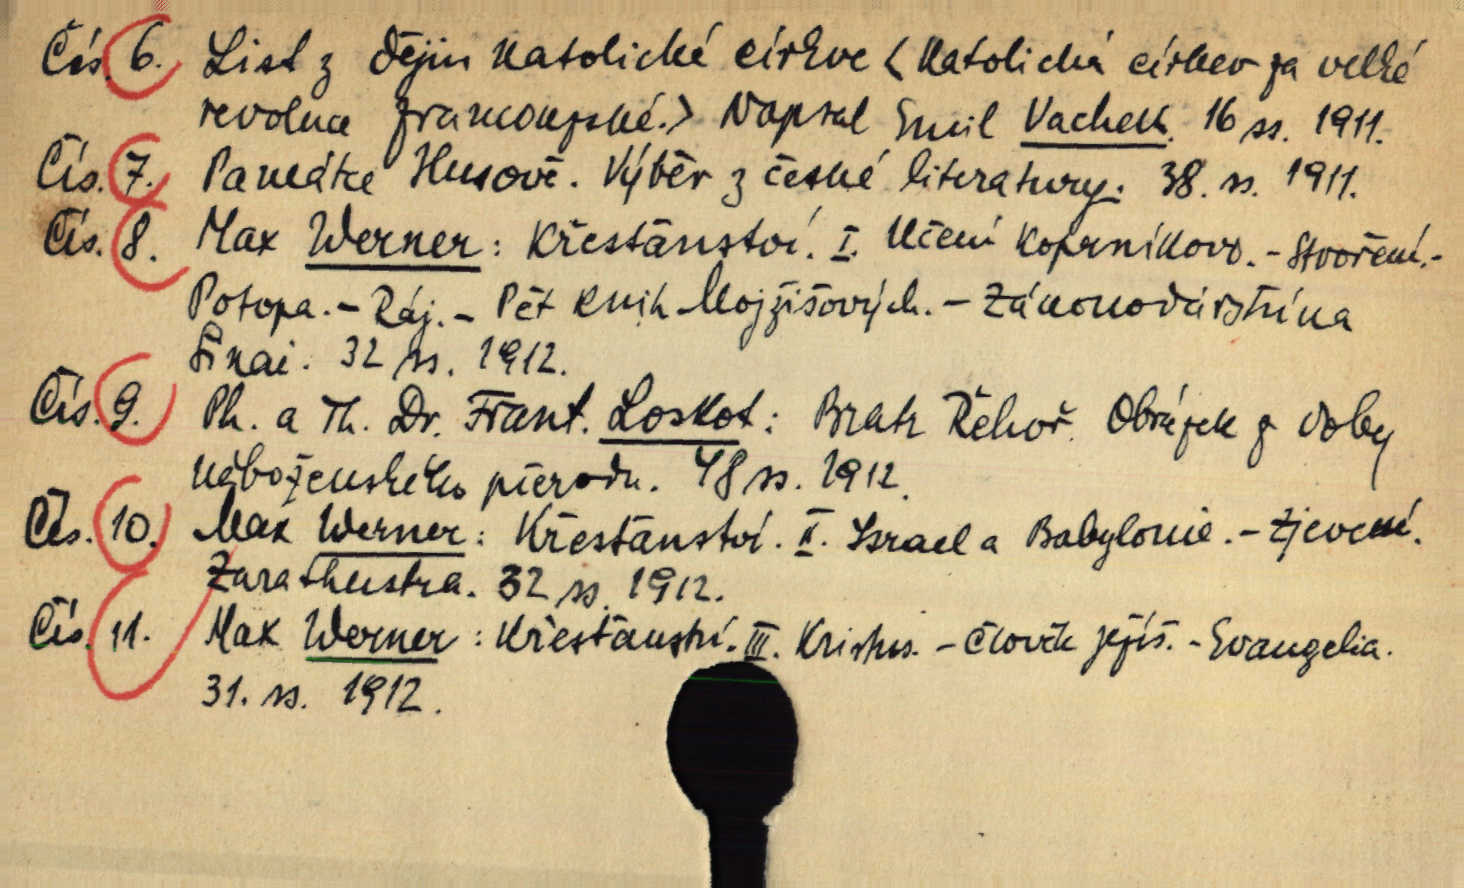 Čís. 6. List z dějin katolické církve (Katolická církev za velké
revoluce francouzské.) Napsal Emil Vachek. 16 ss. 1911.
Čís. 7. Památce Husově. Výběr z české literatury. 38. ss. 1911.
Čís. 8. Max Werner: Křesťanství. I. Učení Koperníkovo. - Stvoření. -
Potopa. - Ráj. - Pět knih Mojžíšových. - Zákonodárství na
Sinai. 32 ss. 1912.
Čís. 9. Ph. a Th. Dr. Frant. Loskot: Bratr Řehoř. Obrázek z doby
náboženského přerodu. 48 ss. 1912.
Čís. 10. Max Werner: Křesťanství. II. Israel a Babylonie. - Zjevení.
Zarathustra. 32 ss. 1912.
Čís. 11. Max Werner: Křesťanství. III. Kristus. - Člověk Ježíš. - Evangelia.
31. ss. 1912.